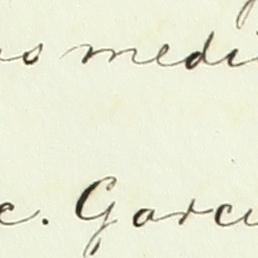 os medi
c. Garci